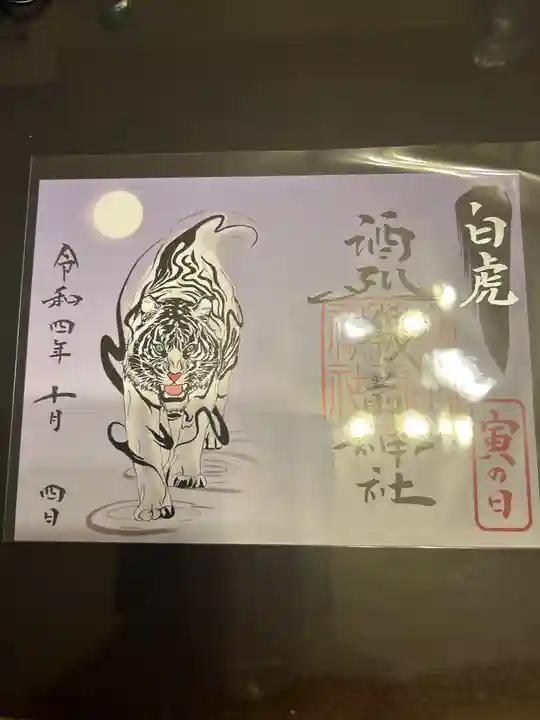 白虎
寅の日
酒列磯前神社
令和四年 十月 四日